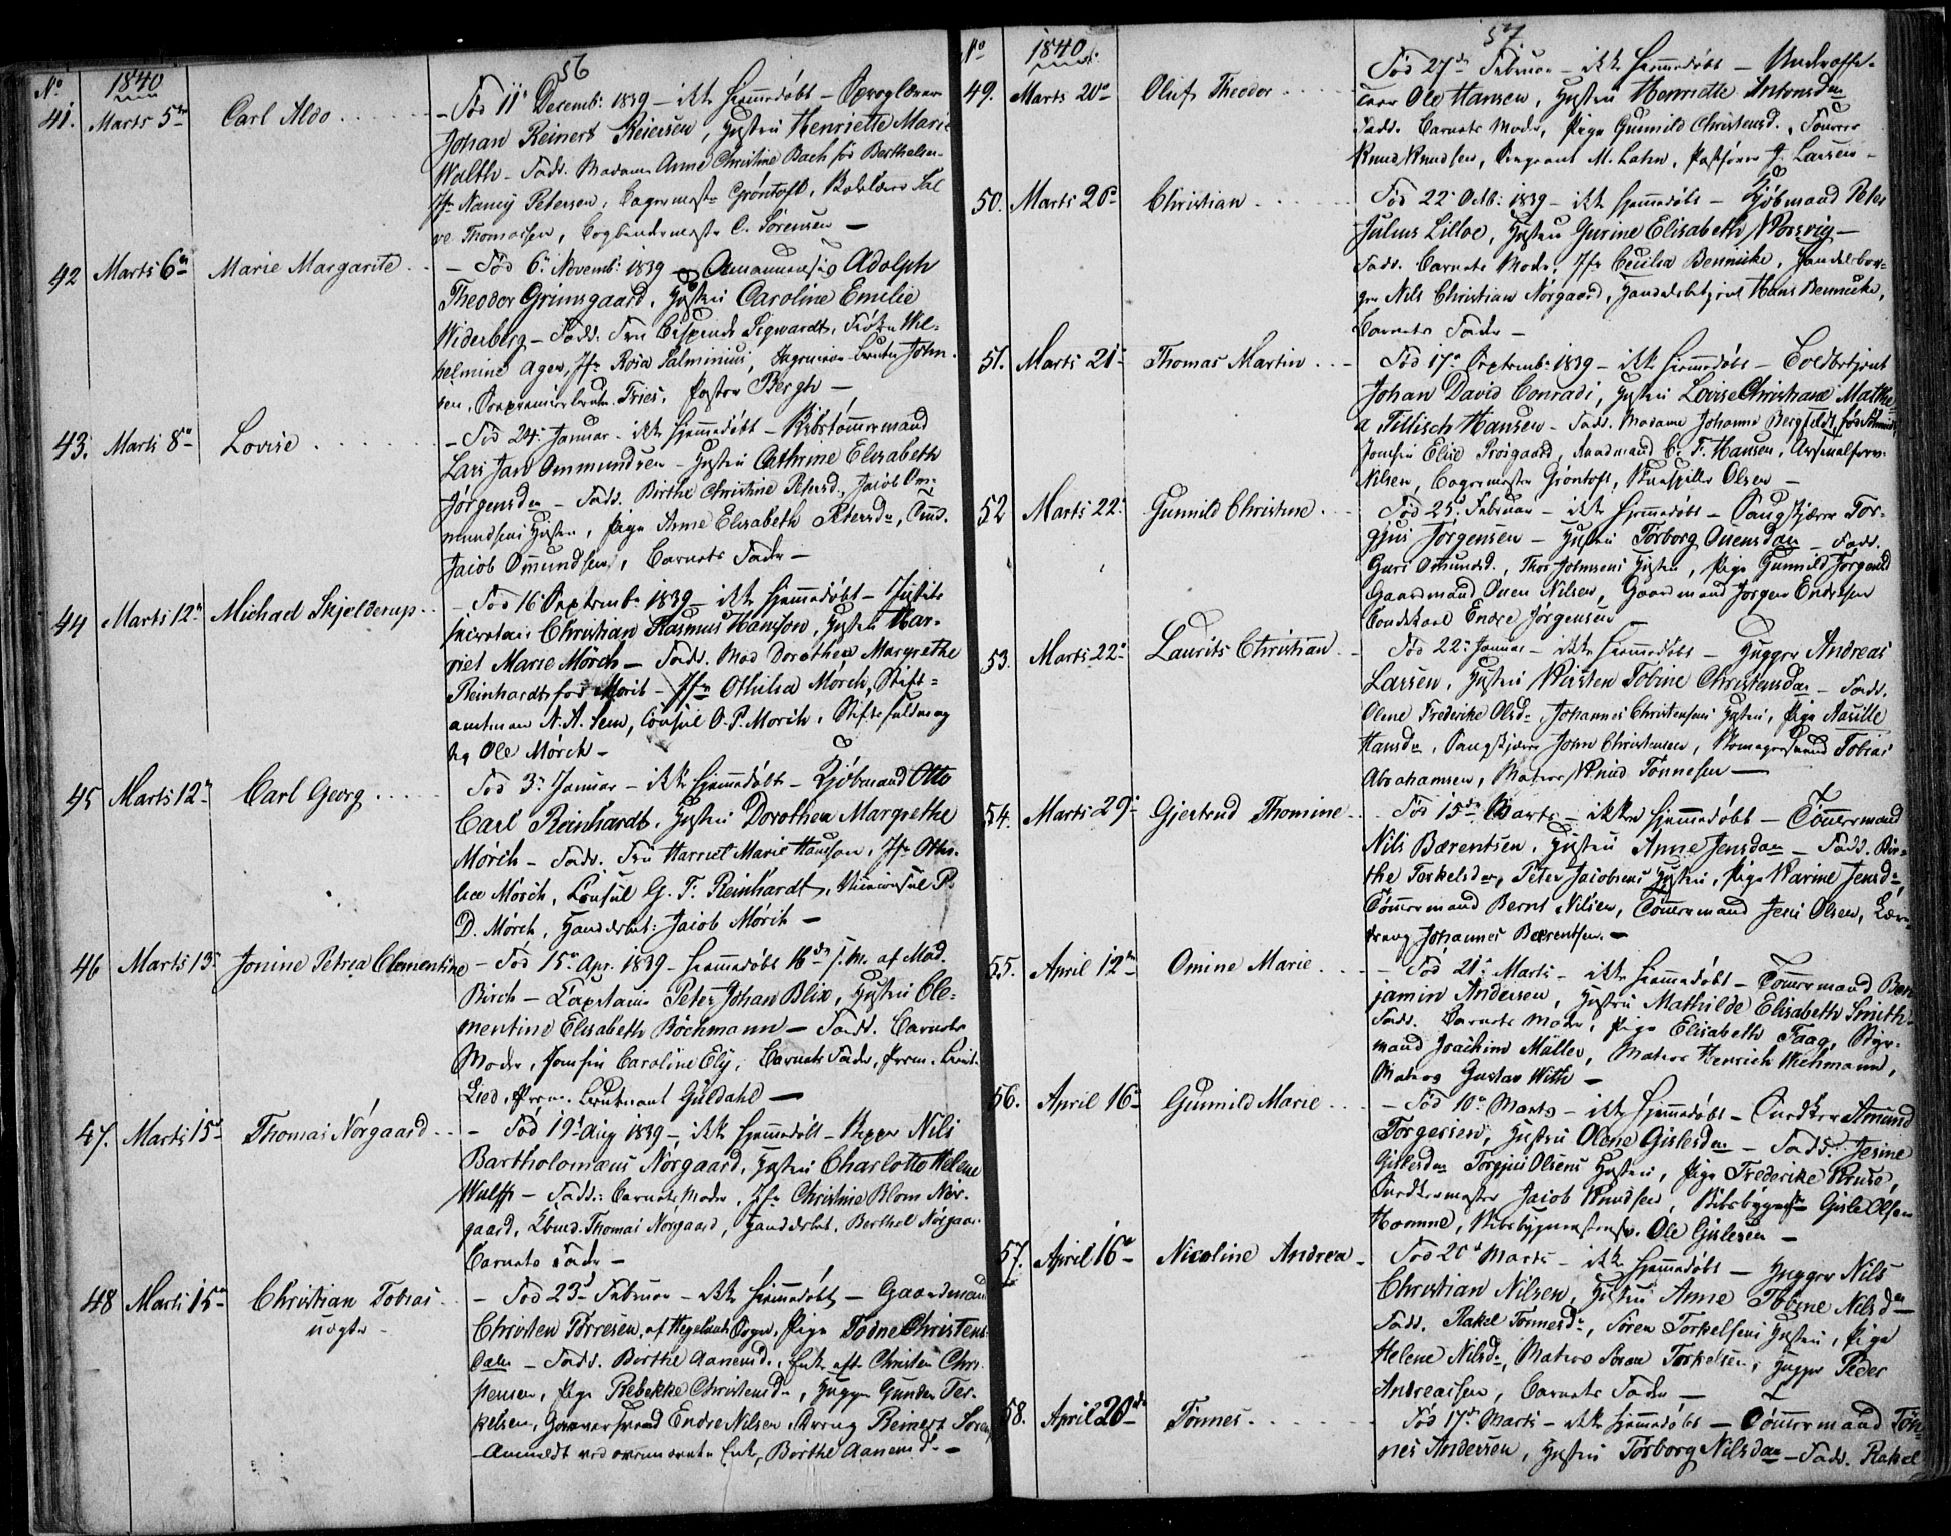 56
No 1840
41. Marts 5te Carl Aldo
- Fød 11te Decemb: 1839 - ikke hjemmedøbt - Sproglærer
Johan Reinert Reiersen, Hustru Henriette Marie
Walth - Fadd. Madame Anne Christine Bach fød Berthelsen
Jfr Nancy Petersen, Grøntoft,
Thomassen, Bogbindermester C. Sørensen -
42 Marts 6te Marie Margarite
- Fød 6te Novemb: 1839 - Amanuensis Adolph
Theodor Grimsgaard, Hustru Caroline Emilie
Widerberg - Fadd. Fru Bispinde Sigwardt, Frøken Wil-
helmine Ager, Jfr Rosa Palminius, John-
sen, Fries, Pastor Bergh -
43. Marts 8de Lovise
- Fød 24de Januar - ikke hjemmedøbt - Skibstømmermand
Lars Jan Ommundsen - Hustru Cathrine Elisabeth
Jørgensdr - Fadd. Birthe Christine Petersd., Jacob Om-
mundsens Hustru, Pige Anne Elisabeth Petersdr,
Jacob Omundsen, Barnets Fader -
44 Marts 12te Michael Skjelderup
- Fød 16de Septemb: 1839 - ikke hjemmedøbt - Justits
secretair Christian Rasmus Hansson, Hustru Har-
riet Marie Mørch - Fadd. Mad Dorothea Margrethe
Reinhardt fød Mørch - Jfr Othilia Mørch, Stift-
amtman N. A. Sem, Consul O. P. Mørch, Stiftsfuldmæg
tig Ole Mørch -
45 Marts 12te Carl Georg
Fød 3de Januar - ikke hjemmedøbt - Kjøbmand Otto
Carl Reinhardt, Hustru Dorothea Margrethe
Mørch - Fadd. Fru Harriet Marie Hansson, Jfr Othi-
lia Mørch, Consul G. F. Reinhardt, Viceconsul P.
D. Mørch, Handelsbet: Jacob Mørch -
46 Marts 13de Jonine Petrea Clementine
- Fød 15de Apr. 1839 - hjemmedøbt 16de s. M. af Mad.
Birch - Capitain Peter Johan Blix, Hustru Cle-
mentine Elisabeth Bochmann - Fadd. Barnets
Moder, Jomfru Caroline Ely, Barnets Fader, Prem. Lieut.
Lied, Prem. Lieutnant Güldahl -
47. Marts 15de Thomas Nørgaard
- Fød 19de Aug 1839 - ikke hjemmedøbt - Skipper Nils
Bartholomæus Nørgaard, Hustru Charlotte Helene
Wulff - Fadd: Barnets Moder, Jfr Christine Blom Nør-
gaard, Kbmd. Thomas Nørgaard, Handelsbet. Berthel Nørgaar
Barnets Fader -
48 Marts 15de Christian Tobias
uægte -
- Fød 23de Februar - ikke hjemmedøbt - Gaardmand
Christen Torresen, af Hegelands Sogn, Pige Todne Christens-
datr - Fadd. Berthe Aanensd., Enke eft. Christen Chri-
stensen, Pige Rebekke Christensdr, Hugger Gunder Ter-
kelsen, Endre Nilsen, Dreng Reinert Soren
- Anmeldt ved ovennævnte Enke, Berthe Aanensd. -
57
No 1840.
49. Marts 20de Oluf Theodor
Fød 27de Februar - ikke hjemmedøbt - Underoffi-
ceer Ole Hansen, Hustru Henriette Antonsdr
Fadd. Barnets Moder, Pige Gunnild Christensd.,
Knud Knudsen, Sergeant M. Lahn, J. Larsen -
50. Marts 20de Christian
Fød 22de Octb: 1839 - ikke hjemmedøbt - Kjøbmand Peter
Julius Lilloe, Hustru Gurine Elisabeth Korsvig -
Fadd. Barnets Moder, Jfr Cecilia Bennicke, Handelsbor-
ger Nils Christian Nørgaard, Handelsbetjent Hans Bennicke,
Barnets Fader -
51. Marts 21de Thomas Martin
- Fød 17de Septemb. 1839 - ikke hjemmedøbt - Toldbetjent
Johan David Conradi, Hustru Lovise Christiane Mathe
a Tillisch Hansen - Fadd. Madame Johanne Bergfeldt, fød Schmidt,
Jomfru Elise Prøigaard, C. F. Hansen, Arsenalforv-
Nilsen, Grøntoft, Olsen -
52 Marts 22de Gunnild Christine
Fød 25de Februar - ikke hjemmedøbt - Saugskjærer Tor-
gjus Jørgensen - Hustru Torborg Onensdatr - Fadd.
Guri Osmundsd., Thor Johnsens Hustru, Pige Gunnild Jørgensd
Gaardmand Onen Nilsen, Gaardmand Jørgen Endresen
Endre Jørgensen -
53. Marts 22de Laurits Christian
Fød 22de Januar - ikke hjemmedøbt - Hugger Andreas
Larsen, Hustru Kirsten Tobine Christensdatr - Fadd.
Olene Frederike Olsdr, Johannes Christensens Hustru, Pige Aasille
Hansdr, Saugskjærer John Christensen, Skomagersvend Tobias
Abrahamsen, Matros Knud Tønnesen -
54. Marts 29de Gjertrud Thomine
Fød 15de Marts - ikke hjemmedøbt - Tømmermand
Nils Bærentsen, Hustru Anne Jensdatr - Fadd. Bir-
the Torkelsdr, Peter Jacobsens Hustru, Pige Karine Jensdr,
Tømmermand Bernt Nilsen, Tømmermand Jens Olsen, Lære-
dreng Johannes Bærentsen. -
55. April 12te Omine Marie
- Fød 21de Marts - ikke hjemmedøbt - Tømmermand Ben-
jamin Andersen, Hustru Mathilde Elisabeth Smith -
Fadd. Barnets Moder, Pige Elisabeth Faag, Styr-
mand Joachim Müller, Matros Henrich Wichmann,
Matros Gustav With -
56. April 16de Gunnild Marie
- Fød 10de Marts - ikke hjemmedøbt - Snedker Amund
Torgersen, Hustru Olene Gislesdr - Fadd. Jesine
Gislesdr Torgjus Olsens Hustru, Pige Frederike Kruse,
Snedkermester Jacob Knudsen, Skibsbygger Gisle Olsen
Homme, Ole Gislesen -
57. April 16de Nicoline Andrea
Fød 20de Marts - ikke hjemmedøbt - Hugger Nils
Christian Nilsen, Hustru Anne Tobine Nilsdr
Fadd. Rakel Tønnesdr, Søren Torkelsens Hustru, Pige
Helene Nilsdr, Matros Søren Torkelsen, Hugger Peder
Andreassen, Barnets Fader -
58. April 20de Tønnes
Fød 17de Marts - ikke hjemmedøbt - Tømmermand Tøn
nes Andersen, Hustru Torborg Nilsdatr - Fadd. Rakel